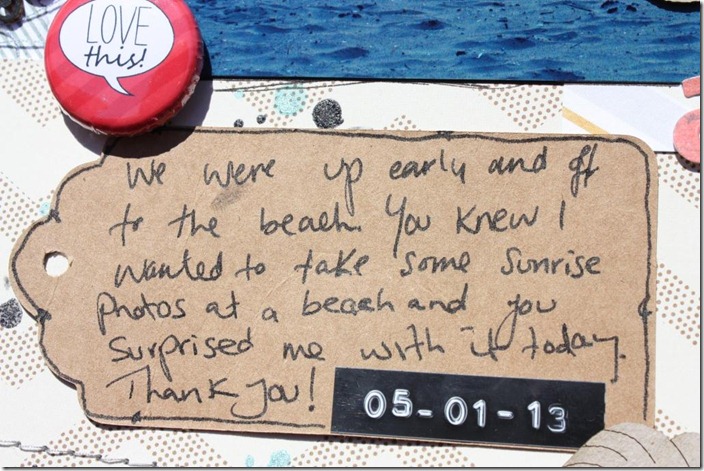 LOVE
this!
We were up early and off
to the beach. You knew I
wanted to take some sunrise
photos at a beach and you
surprised me with it today.
Thank you!
05-01-13